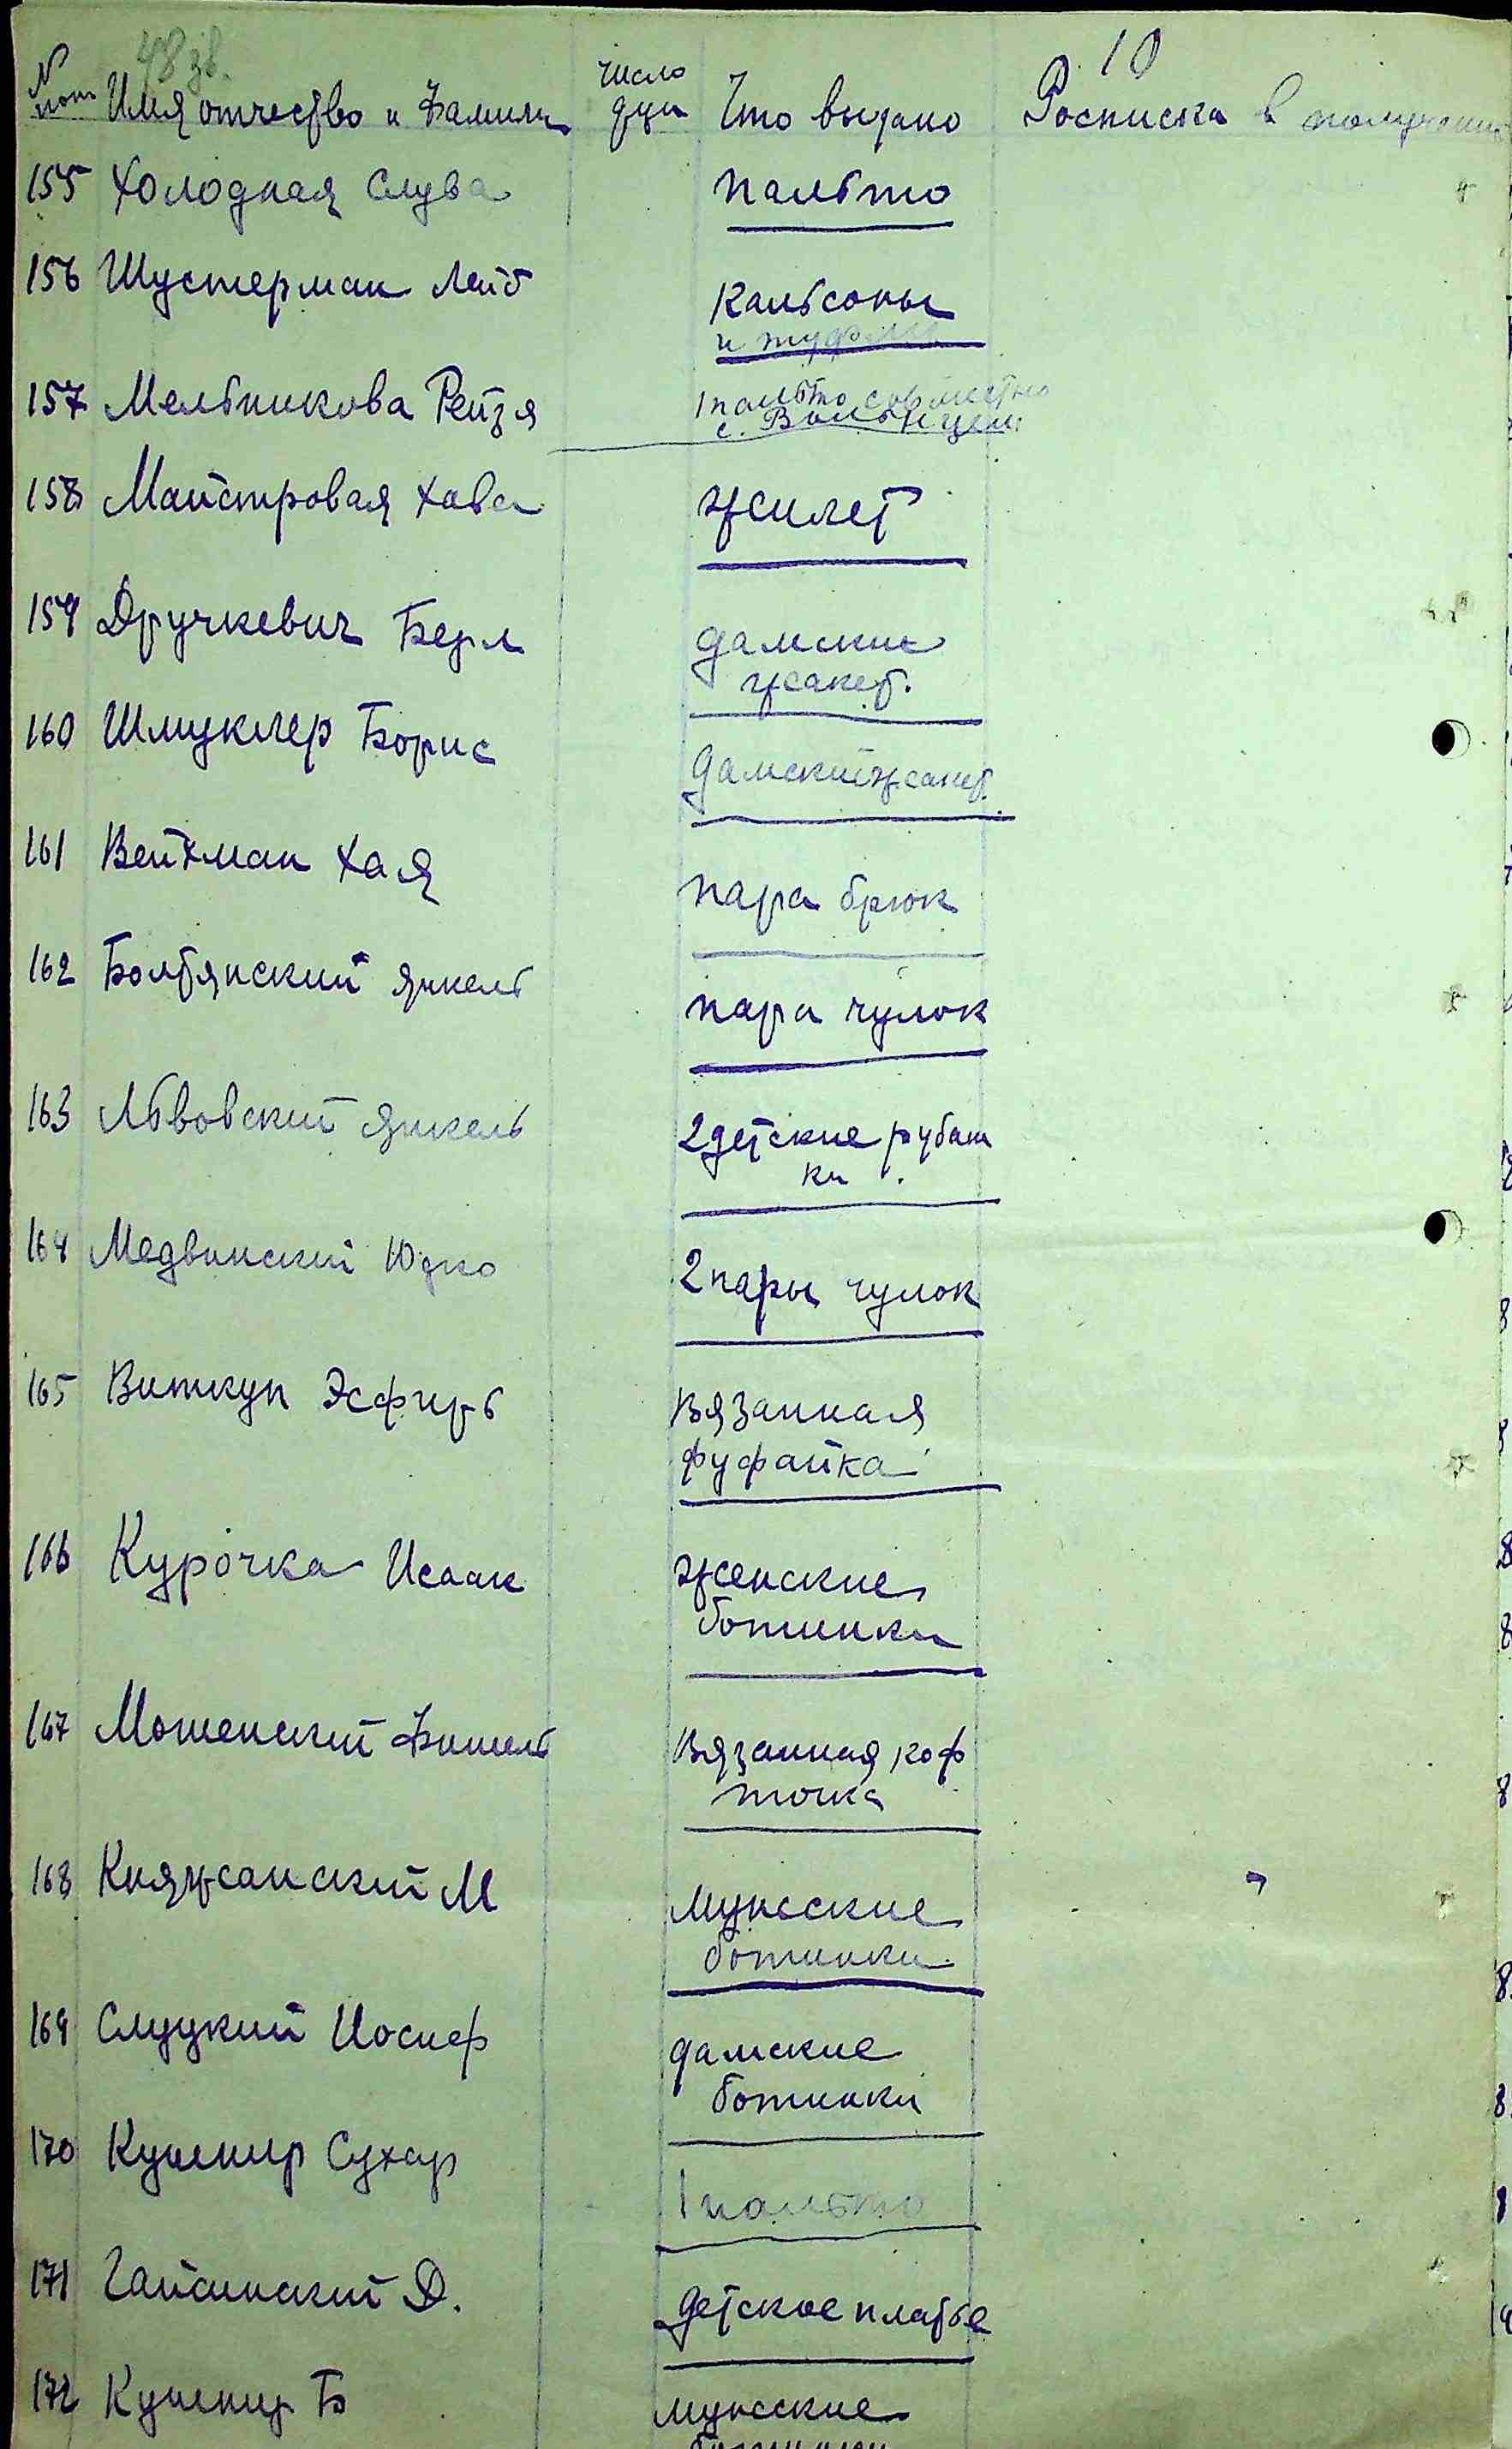 48 зв.
10
№ пот Имя отчество и Фамили число душ Что выдано Росписка в получении
155 Холодная Слува пальто
156 Шустерман Лейб Кальсоны
и туфли
157 Мельникова Рейзя 1 пальто совместно
с. Вольницем
158 Майстровая Хава жилет
159 Дручкевич Берл дамские
жакет.
160 Шмуклер Борис Дамский жакет.
161 Вейхман Хая пара брюк
162 Болбянский Янкель пара чулок
163 Львовский Янкель 2 детские рубаш
ки.
164 Медвинский Юдко 2 пары чулок
165 Виткуп Эсфирь Вязанная
фуфайка
166 Курочка Исаак женские
ботинки
167 Мошенский Фишель Вязанная коф
точка
168 Княжанский М мужские
ботинки
169 Слуцкий Иосиф дамские
ботинки
170 Кушнир Сухар 1 пальто
171 Гайсинский Д. детское платье
172 Кушнир Б мужские